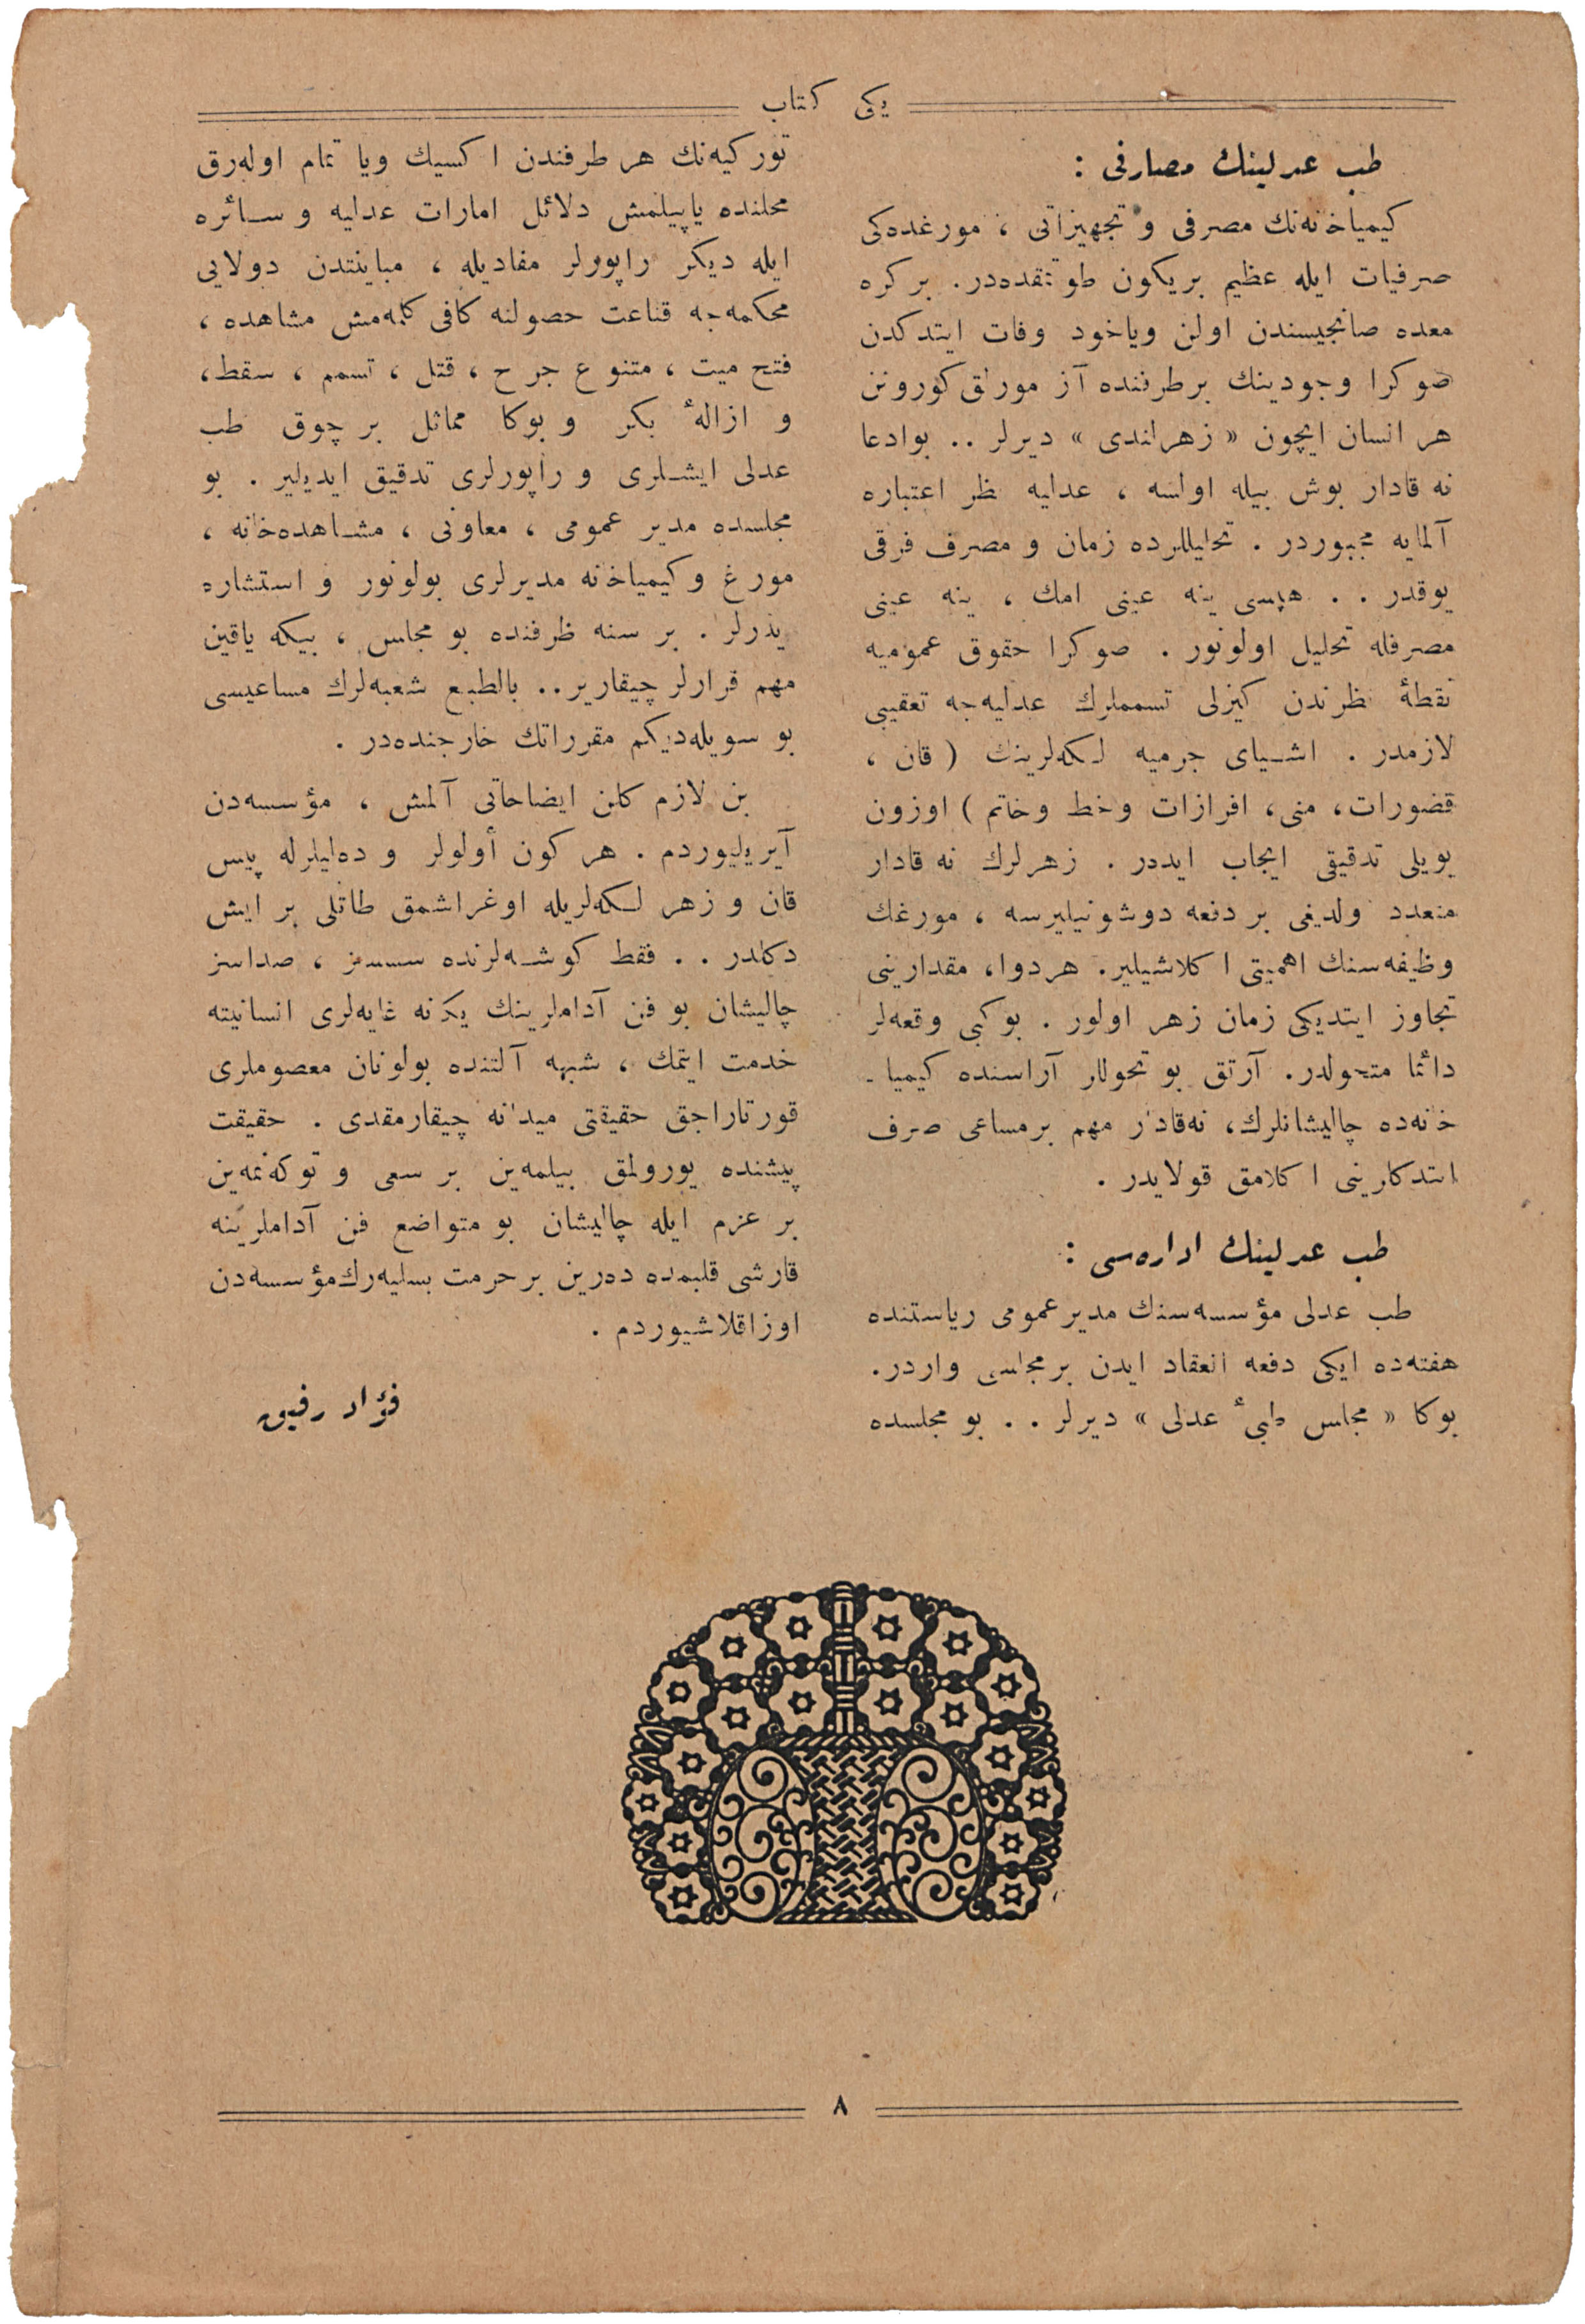 یکی کتاب
طب عدلینك مصارفی :
کیمیاخانه‌نك مصرفی و تجهیزاتی ، مورغده‌کی
صرفیات ایله عظیم بریکون طوتقده‌در. برکره
معده صانجیسندن اولن ویاخود وفات ایتدکدن
صوکرا وجودینك برطرفنده آز مورلق کورونن
هر انسان ایچون « زهرلندی » دیرلر .. بوادعا
نه قادار بوش بیله اولسه ، عدلیه نظر اعتباره
آلمایه مجبوردر . تحلیللرده زمان و مصرف فرقی
یوقدر . . هپسی ینه عینی امك ، ینه عینی
مصرفله تحلیل اولونور . صوکرا حقوق عمومیه
نقطهٔ نظرندن کیزلی تسمملرك عدلیه‌جه تعقیبی
لازمدر . اشیای جرمیه لکه‌لرینك ( قان ،
قضورات، منی، افرازات وخط وخاتم ) اوزون
بویلی تدقیقی ایجاب ایدر . زهرلرك نه قادار
متعدد ولدیغی بر دفعه دوشونیلیرسه ، مورغك
وظیفه‌سنك اهمیتی اکلاشیلیر. هردوا، مقدارینی
تجاوز ایتدیکی زمان زهر اولور . بوکبی وقعه‌لر
دائما متحولدر. آرتق بو تحوللر آراسنده کیمیا -
خانه‌ده چالیشانلرك، نه‌قادار مهم برمساعی صرف
ایتدکلرینی اکلامق قولایدر .
طب عدلینك اداره‌سی :
طب عدلی مؤسسه‌سنك مدیرعمومی ریاستنده
هفته‌ده ایکی دفعه انعقاد ایدن برمجلسی واردر.
بوکا « مجلس طبیٔ عدلی » دیرلر . . بو مجلسده
تورکیه‌نك هر طرفندن اکسیك ویا تمام اوله‌رق
محلنده یاپیلمش دلائل امارات عدلیه و سائره
ایله دیکر راپورلر مفادیله ، مباینتدن دولایی
محکمه‌جه قناعت حصولنه کافی کلمه‌مش مشاهده ،
فتح میت ، متنوع جرح ، قتل ، تسمم ، سقط،
و ازالهٔ بکر و بوکا مماثل بر چوق طب
عدلی ایشلری و راپورلری تدقیق ایدیلیر . بو
مجلسده مدیر عمومی ، معاونی ، مشاهده‌خانه ،
مورغ وکیمیاخانه مدیرلری بولونور و استشاره
یدرلر . بر سنه ظرفنده بو مجلس ، بیکه یاقین
مهم قرارلر چیقاریر.. بالطبع شعبه‌لرك مساعیسی
بو سویله‌دیکم مقرراتك خارجنده‌در .
بن لازم کلن ایضاحاتی آلمش ، مؤسسه‌دن
آیریلیوردم . هر کون أولولر و ده‌لیلرله پیس
قان و زهر لکه‌لریله اوغراشمق طاتلی بر ایش
دکلدر . . فقط کوشه‌لرنده سسسز ، صداسز
چالیشان بو فن آداملرینك یکانه غایه‌لری انسانیته
خدمت ایتمك ، شبهه آلتنده بولونان معصوملری
قورتاراجق حقیقتی میدانه چیقارمقدی . حقیقت
پیشنده یورولمق بیلمه‌ین بر سعی و توکه‌نمه‌ین
بر عزم ایله چالیشان بو متواضع فن آداملرینه
قارشی قلبمده ده‌رین برحرمت بسلیه‌رك مؤسسه‌دن
اوزاقلاشیوردم .
فؤاد رفیق
۸